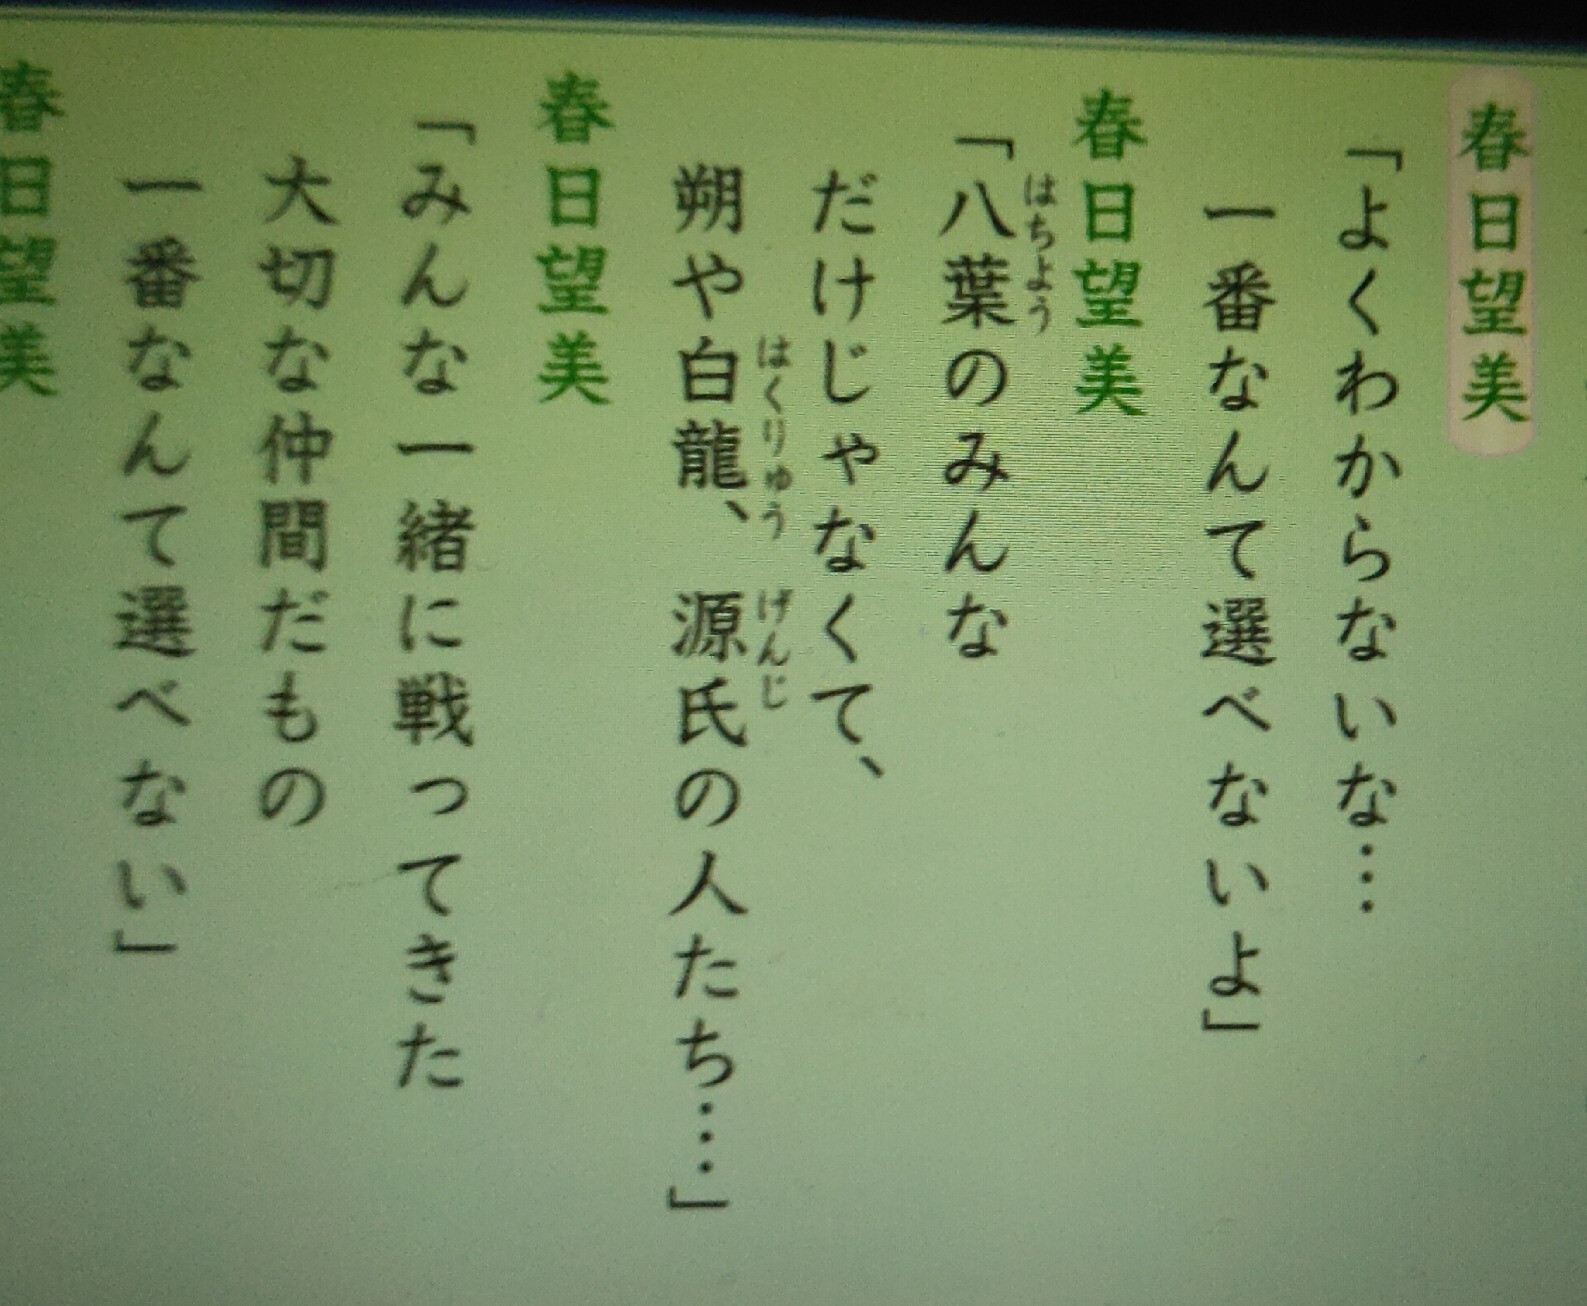 春日望美
「よくわからないな…
一番なんて選べないよ」
春日望美
「八葉のみんな
はちよう
だけじゃなくて、
朔や白龍、源氏の人たち…」
はくりゅう げんじ
春日望美
「みんな一緒に戦ってきた
大切な仲間だもの
一番なんて選べない」
春日望美